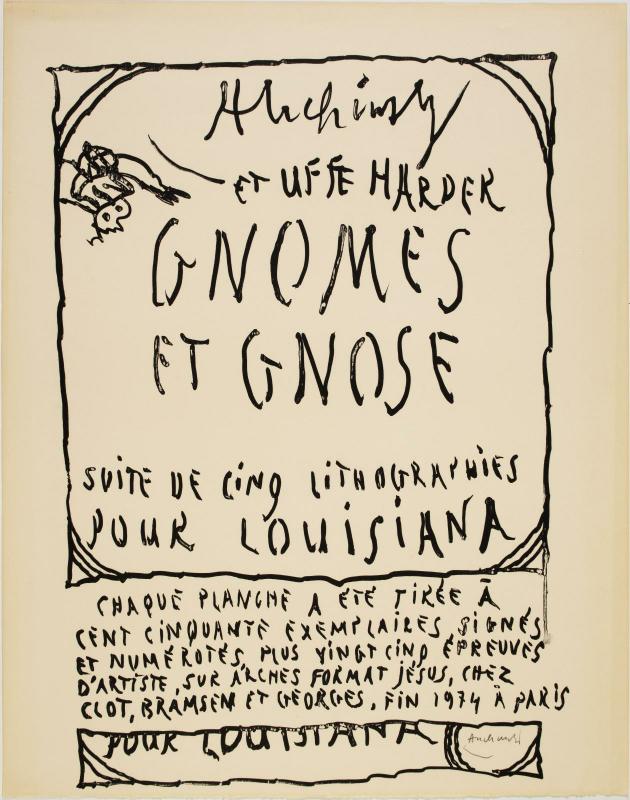 Alechinsky
ET UFFE HARDER
GNOMES
ET GNOSE
SUITE DE CINQ LITHOGRAPHIES
POUR LOUISIANA
CHAQUE PLANCHE A ÉTÉ TIRÉE À
CENT CINQUANTE EXEMPLAIRES, SIGNÉS
ET NUMÉROTÉS, PLUS VINGT CINQ ÉPREUVES
D'ARTISTE, SUR ARCHES FORMAT JÉSUS, CHEZ
CLOT, BRAMSEN ET GEORGES, FIN 1974 À PARIS
POUR LOUISIANA
Alechinsky